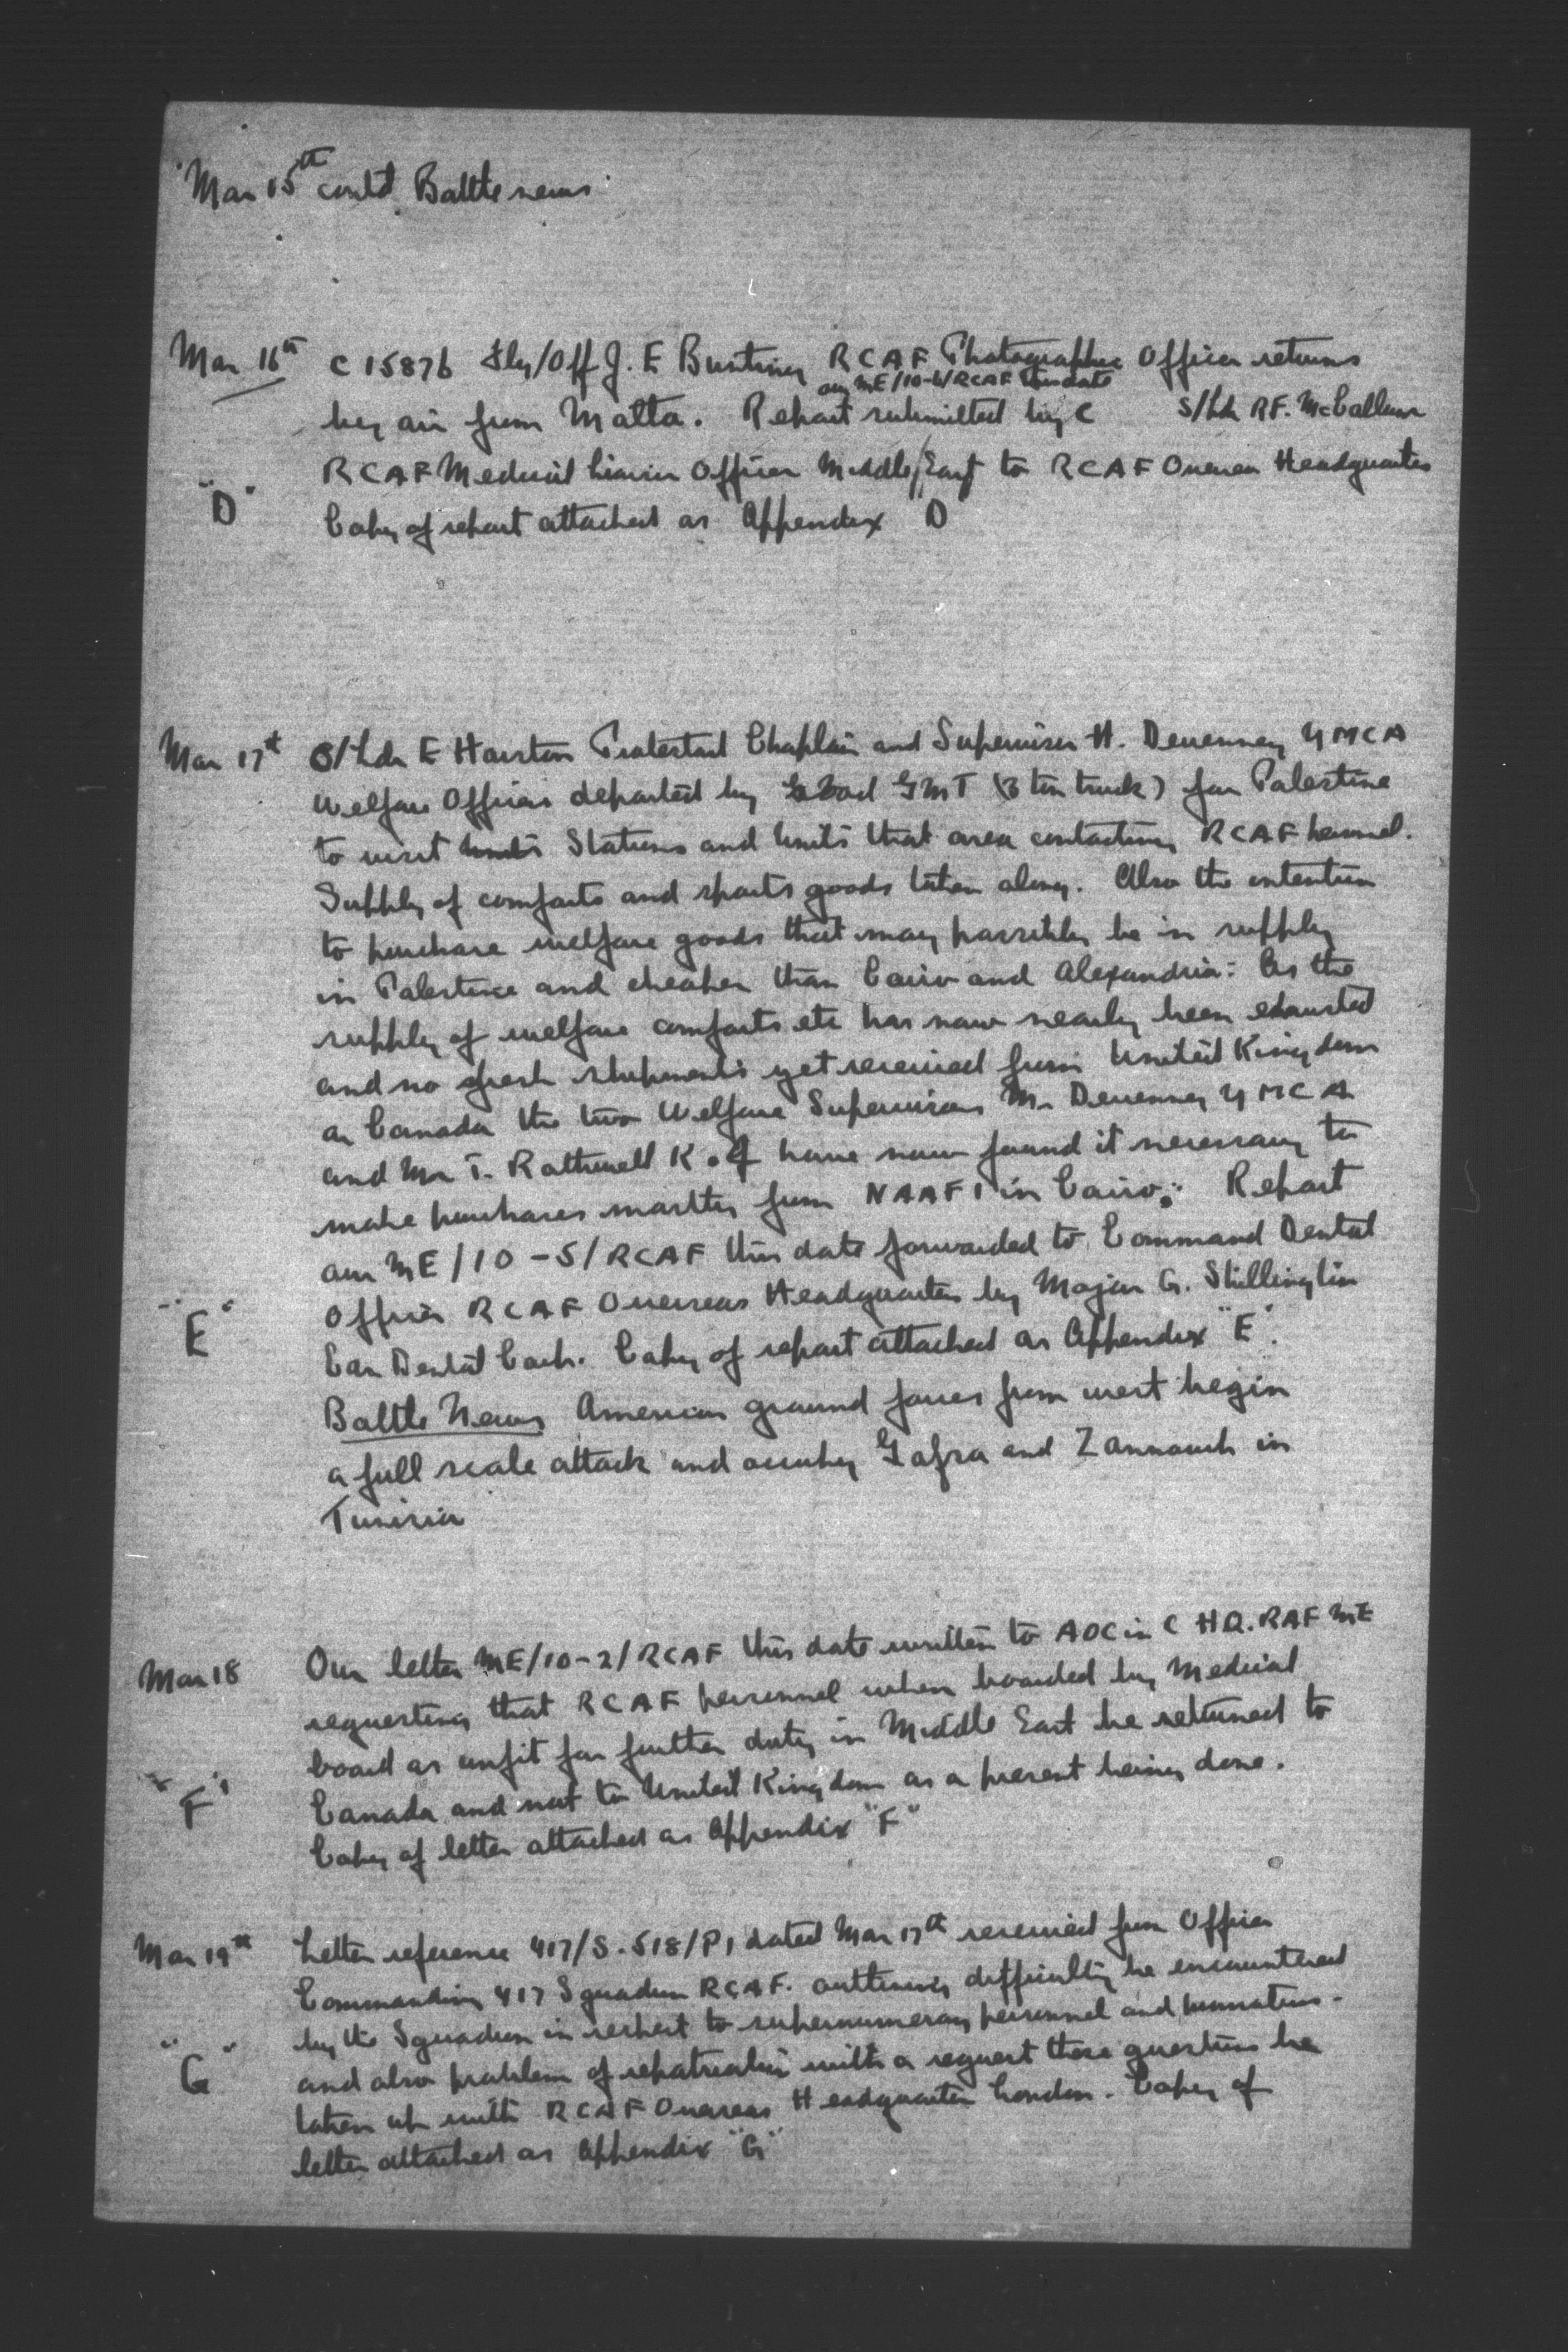 Mar 15th cont'd Battle news
Mar 16th C 15876 Fly/Off J. E Bunting RCAF Photographic Officer returns
our ME/10-6/RCAF this date
by air from Malta. Report submitted by C S/Ldr RF. McCallum
RCAF Medical Liaison Officer Middle East to RCAF Overseas Headquarters
"D" Copy of report attached as Appendix D
Mar 17th S/Ldr E Hairston Protestant Chaplain and Supervisor H. Devenney YMCA
Welfare Officers departed by GMT (3 ton truck) for Palestine
to visit Units Stations and Units that area contacting RCAF personnel.
Supply of comforts and sports goods taken along. Also the intention
to purchase welfare goods that may possibly be in supply
in Palestine and cheaper than Cairo and Alexandria: As the
supply of welfare comforts etc has now nearly been exausted
and no fresh shipments yet received from United Kingdom
or Canada the two Welfare Supervisors Mr. Devenney YMCA
and Mr T. Rothwell K of have now found it necessary to
make purchases monthly from NAAFI in Cairo. Report
our ME/10-5/RCAF this date forwarded to Command Dental
Officer RCAF Overseas Headquarters by Major G. Shillington
"E" Can Dental Corps. Copy of report attached as Appendix "E".
Battle News American ground forces from west begin
a full scale attack and occupy Gafsa and Zannouch in
Tunisia
Mar 18 Our letter ME/10-2/RCAF this date written to AOC in C HQ. RAF ME
requesting that RCAF personnel when boarded by Medical
board as unfit for further duty in Middle East be returned to
"F" Canada and not to United Kingdom as a present being done.
Copy of letter attached as Appendix "F"
Mar 19th Letter reference 417/S.518/P1 dated Mar 17th received from Officer
Commanding 417 Squadron RCAF. outlining difficulty he encountered
by the Squadron in respect to supernumerary personnel and promotions.
"G" and also problem of repatriation with a request these questions be
taken up with RCAF Overseas Headquarters London. Copy of
letter attached as Appendix "G"